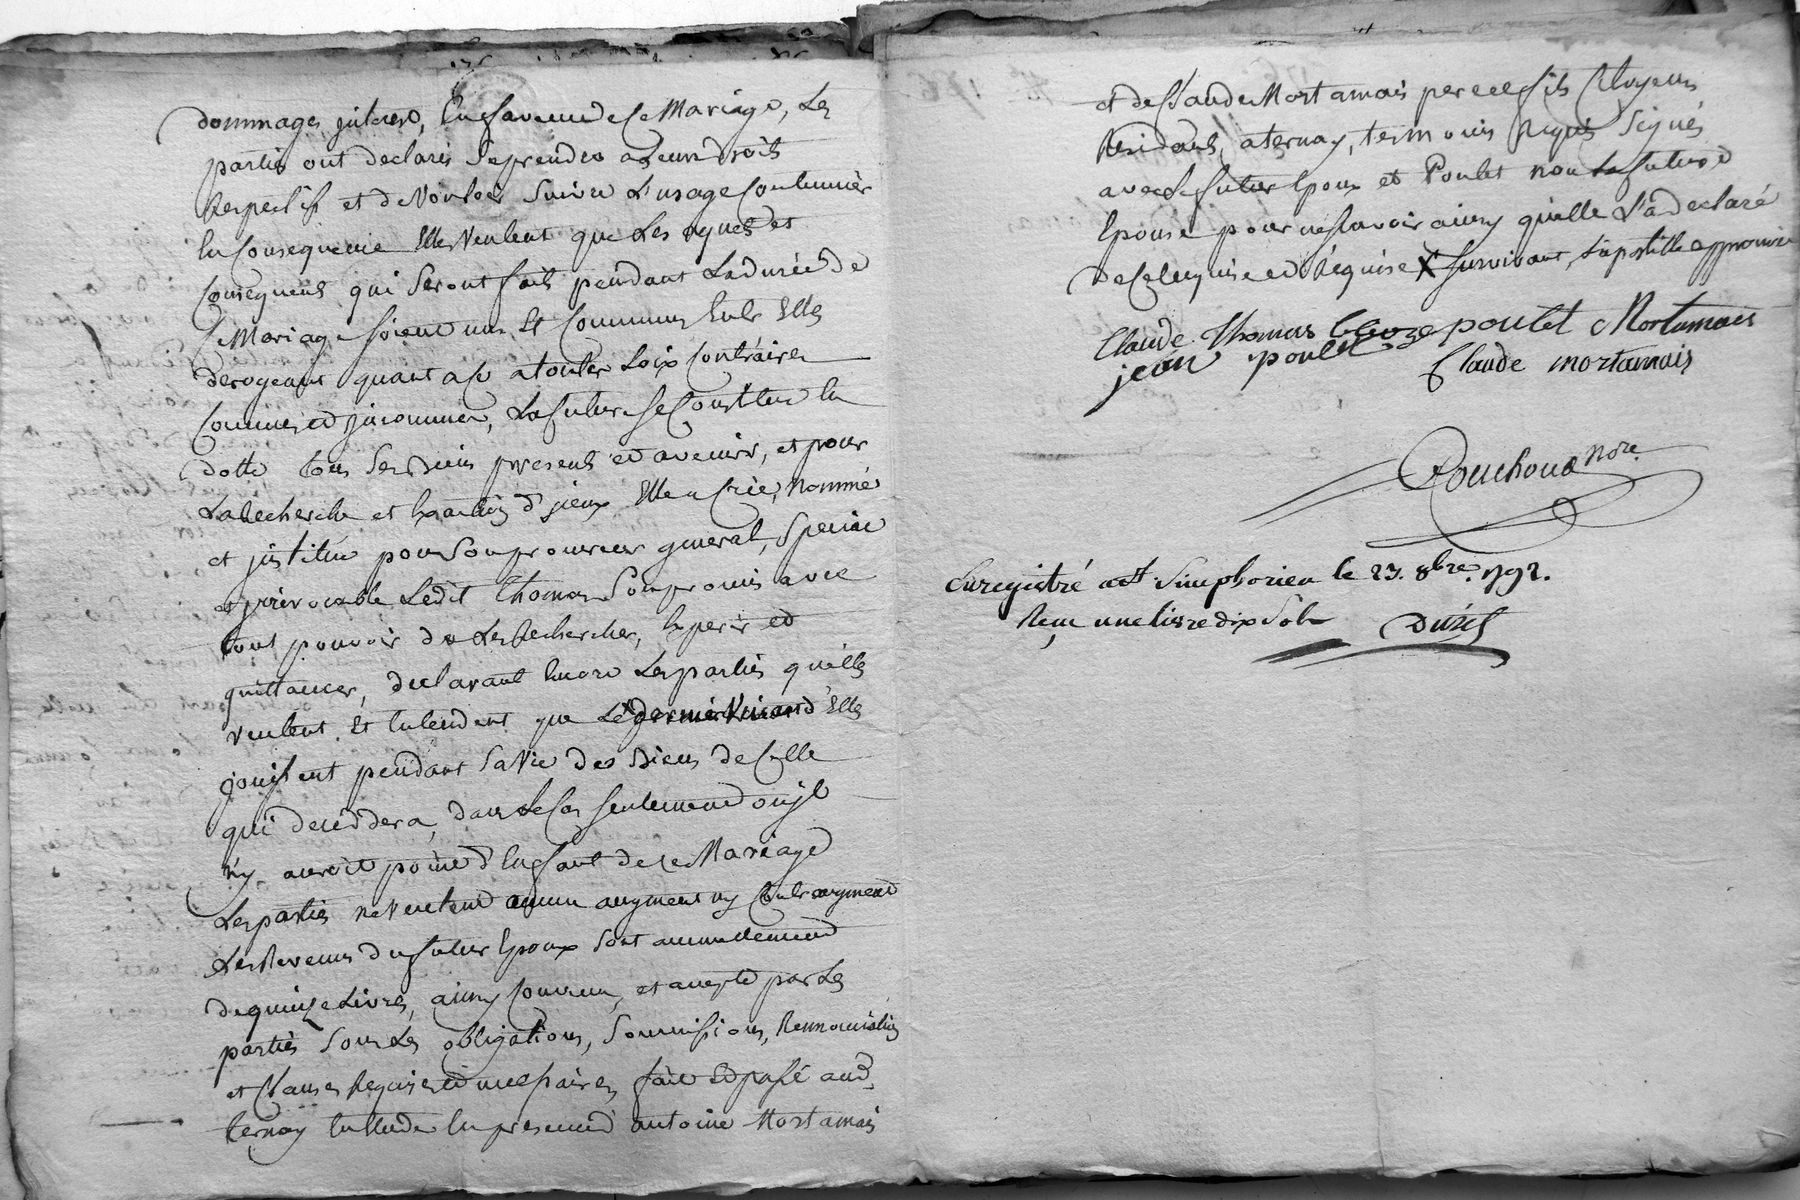 dommages jnterest, En faveur de Ce Mariage, Les
parties ont declarés Se prendre avec Droits
Respectifs et de Vouloir Suivre L'usage Coutumier
En Consequence Elles Veulent que Les aquets et
Conquets qui Seront faits pendant La durée de
Ce Mariage soient uns Et Communs Entr Elles
derogeant quant a Ce a toutes Loix Contraires
Connues et jnconnues, La future Se Constitue En
dotte tous Ses Biens presents et avenirs, et pour
La Recherche et Exaction d'jceux Elle a Crée, Nommé
et jnstitué pour Son procureur general, Special
et jrrevocable Ledit Thomas Son promis avec
tout pouvoir de Les Rechercher, Experir et
quittancer, declarant Encore Les parties qu'elles
veulent Et Entendent que Le dernier Vivant d'Elles
jouissent pendant Sa Vie des Biens de Celle
qui decèddera, dans Le Cas seulement ou jl
n'y auroit point d'Enfant de Ce Mariage
Les parties ne Veulent aucun augment ny Contraugment
Les Revenus du futur Epoux Sont annuellement
de quinze Livres, ainsy Convenu, et accepté par Les
parties Sous Les obligations, Soumissions, Rennonciations
et Clauses Requises et necessaires, fait Et passé aud.
ternay Etude En presence d'antoine Mortamais
et de Claude Mortamais pere et fils Citoyens
Residants a ternay, temoins Requis Signés
avec Le futur Epoux et Poulet non La future
Epouse pour ne Savoir ainsy qu'elle L'a declaré
de Ce Enquise et Requise X survivant, L'apostille approuvé
Claude Thomas poulet Mortamais
jean poulet Claude mortamais
Pouchoud Nore.
Enregistré a St. Simphorien le 23. 8bre. 1792.
Reçu une livre dix Sols